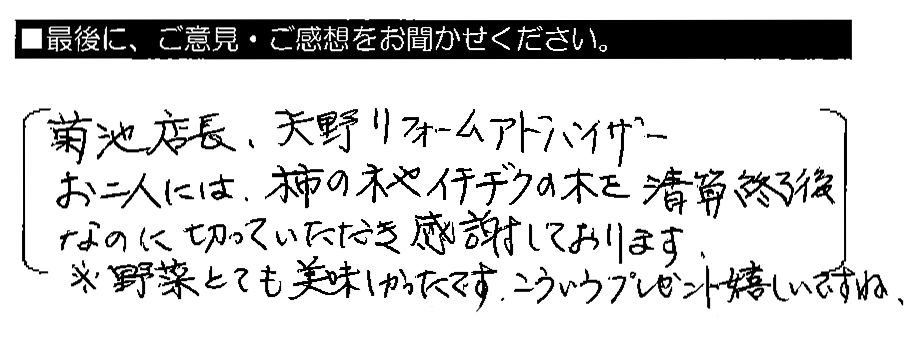 ■最後に、ご意見・ご感想をお聞かせください。
菊池店長、天野リフォームアドバイザー
お二人には、柿の木やイチヂクの木を清算終了後
なのに切っていただき感謝しております。
※野菜とても美味しかったです。こういうプレゼント嬉しいですね、